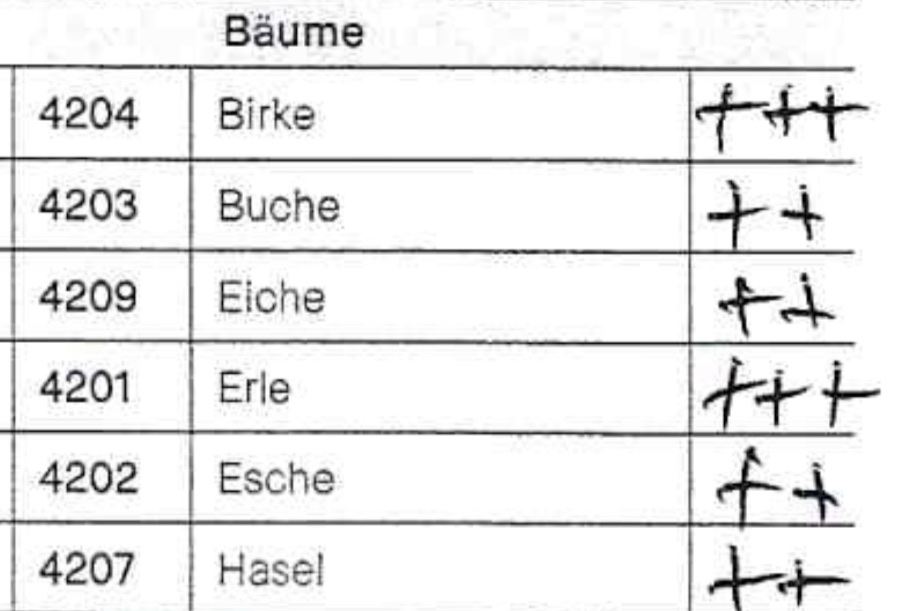 Bäume
4204 Birke +++
4203 Buche ++
4209 Eiche ++
4201 Erle +++
4202 Esche ++
4207 Hasel ++